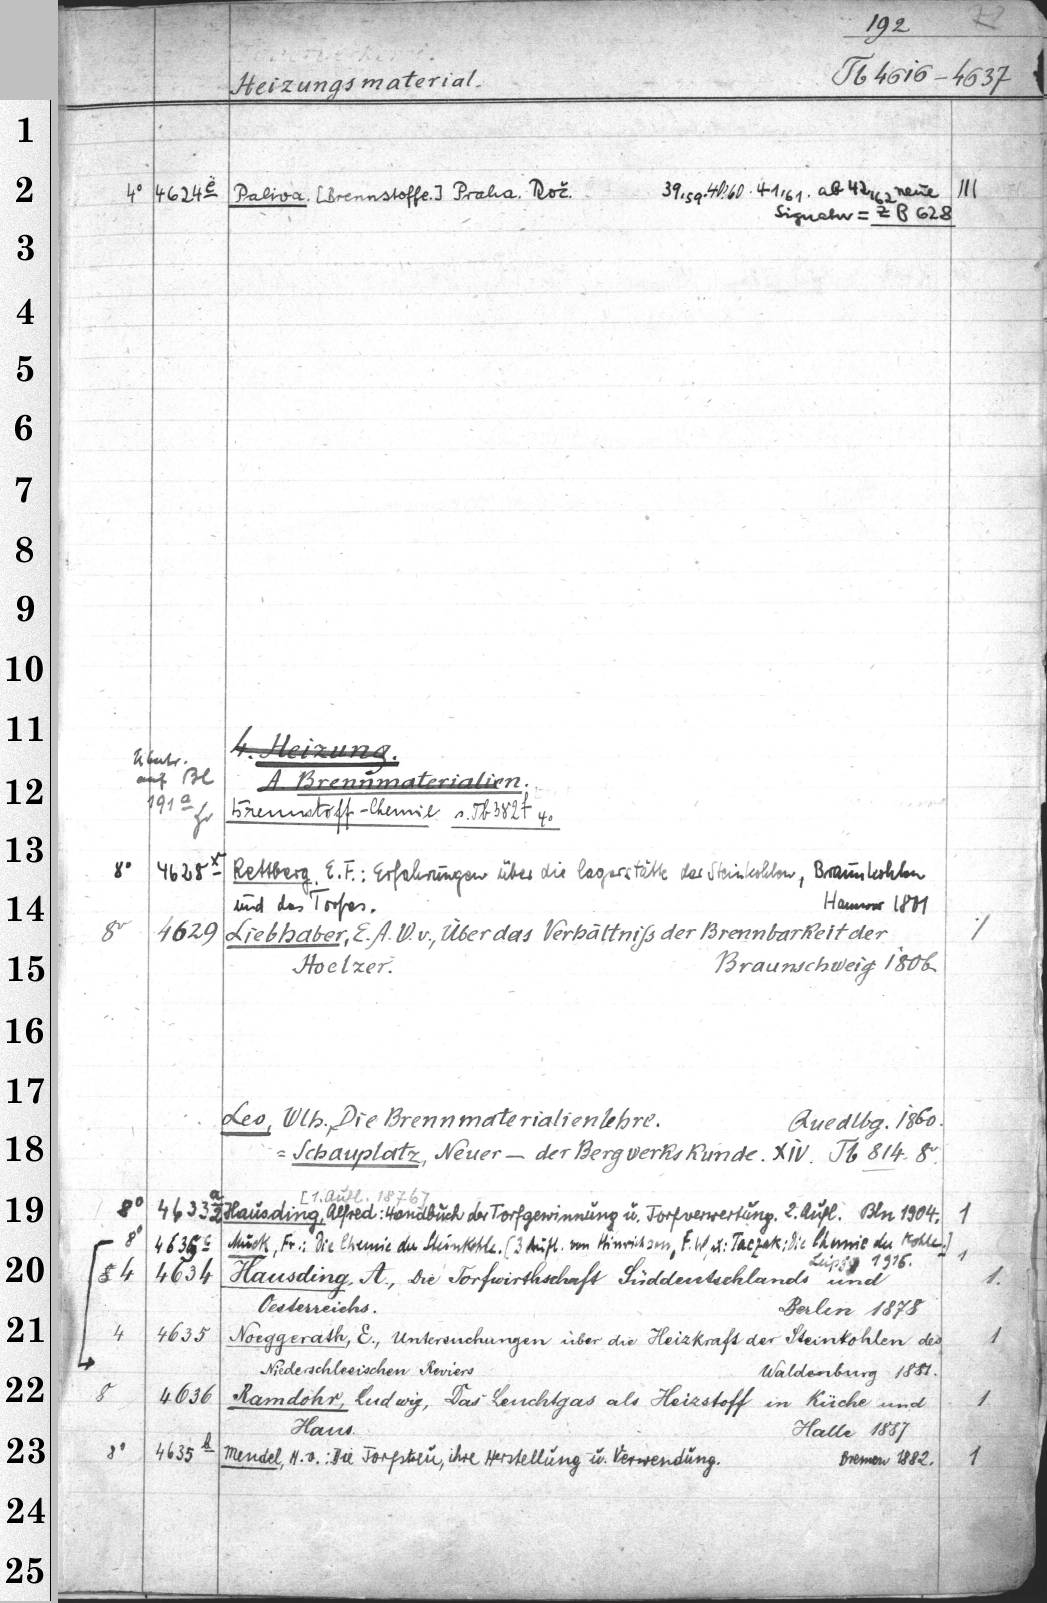 192
Heizungsmaterial. Tb 4616-4637
1
2
4° 4624 e Paliva. [Brennstoffe.] Praha. Roč. 39,59.40,60. 41,61. ab 42,62 neue III
Signatur = Z B 628
3
4
5
6
7
8
9
10
11
4. Heizung.
Übertr.
auf Bl
A Brennmaterialien.
12
191 a
Brennstoff-Chemie s. Tb 382 f 4°
13
8° 4628 x Rettberg, E. F.: Erfahrungen über die Lagerstätte der Steinkohlen, Braunkohlen
14
und des Torfes. Hannover 1801
8° 4629 Liebhaber, E. A. W. v., Über das Verhältniſs der Brennbarkeit der 1
15
Hoelzer. Braunschweig 1806
16
17
Leo, Wlh., Die Brennmaterialienlehre. Quedlbg. 1860.
18
= Schauplatz, Neuer — der Bergwerkskunde. XIV. Tb 814. 8°.
[1. Aufl. 1876?
19
8° 4633 a Hausding, Alfred: Handbuch der Torfgewinnung u. Torfverwertung. 2. Aufl. Bln 1904. 1
8° 4635 c Muck, Fr.: Die Chemie der Steinkohle. [3 Aufl. von Hinrichsen, F. W. u: Taczak: Die Chemie der Kohle.] 1
Leipzig 1916.
20
4 4634 Hausding, A., Die Torfwirthschaft Süddeutschlands und 1.
Oesterreichs. Berlin 1878
21
4 4635 Noeggerath, E., Untersuchungen über die Heizkraft der Steinkohlen des 1
Niederschlesischen Reviers Waldenburg 1881.
22
8 4636 Ramdohr, Ludwig, Das Leuchtgas als Heizstoff in Küche und 1
Haus. Halle 1887
23
8° 4635 b Mendel, H. v.: Die Torfstreu, ihre Herstellung u. Verwendung. Bremen 1882. 1
24
25